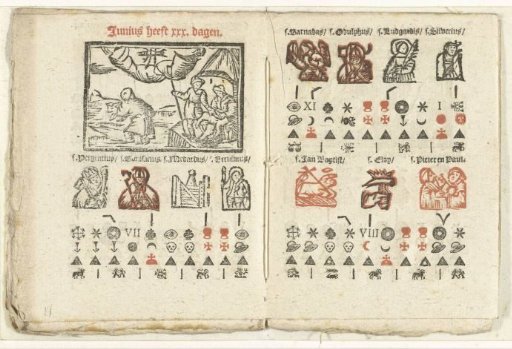 Junius heeft xxx. dagen.
s. Bonifacius s. Medardus
s. Barnabas/ s. Odulphus/ s. Ludgardis/ s. Silverius/
VII
XI I
s. Jan Baptist/ s. Eloy/ s. Pieter en Pauw.
VIII